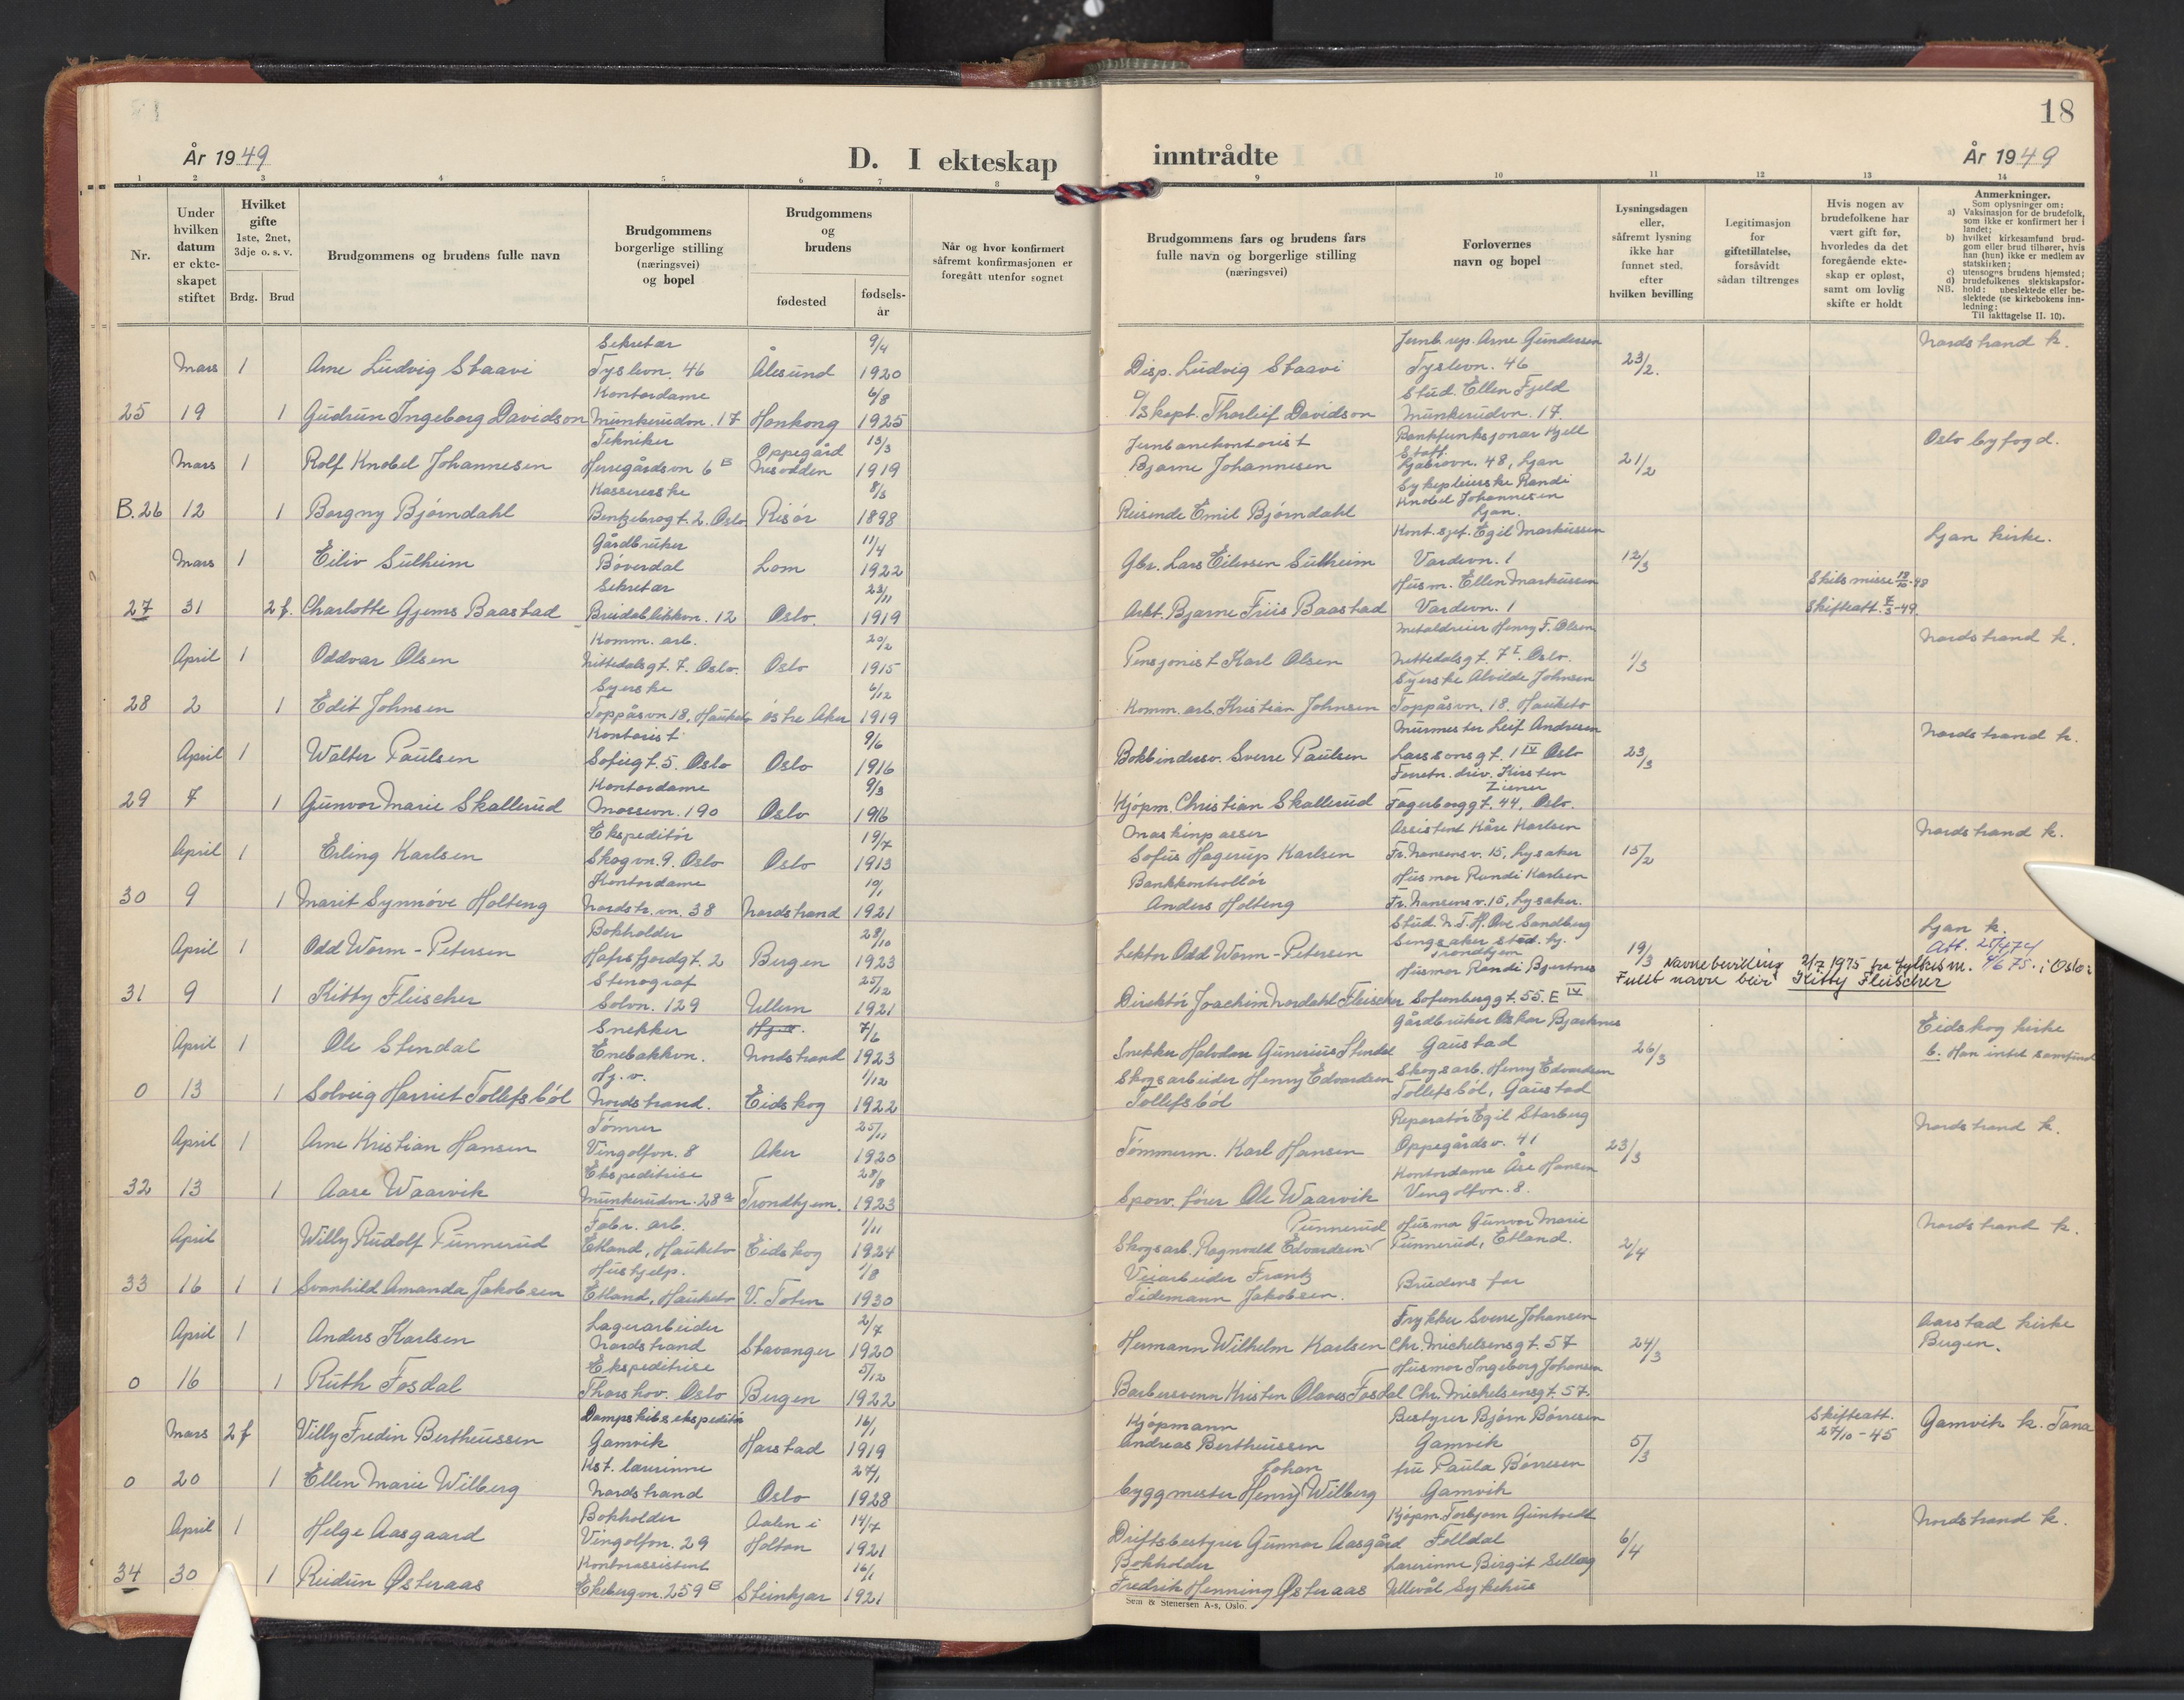 18
År 1949
D. I ekteskap
inntrådte
År 1949
1 2 3 4 5 6 7 8 9 10 11 12 13 14
Nr.
Under hvilken datum er ekteskapet stiftet
Hvilket gifte 1ste, 2net, 3dje o. s. v.
Brdg. Brud
Brudgommens og brudens fulle navn
Brudgommens borgerlige stilling (næringsvei) og bopel
Brudgommens og brudens
fødested
fødsels-år
Når og hvor konfirmert såfremt konfirmasjonen er foregått utenfor sognet
Brudgommens fars og brudens fars fulle navn og borgerlige stilling (næringsvei)
Forlovernes navn og bopel
Lysningsdagen eller, såfremt lysning ikke har funnet sted, efter hvilken bevilling
Legitimasjon for giftetillatelse, forsåvidt sådan tiltrenges
Hvis nogen av brudefolkene har vært gift før, hvorledes da det foregående ekteskap er opløst, samt om lovlig skifte er holdt
Anmerkninger.
Som oplysninger om:
a) Vaksinasjon for de brudefolk, som ikke er konfirmert her i landet;
b) hvilket kirkesamfund brudgom eller brud tilhører, hvis han (hun) ikke er medlem av statskirken;
c) utensogns brudens hjemsted;
d) brudefolkenes slektskapsforhold: ubeslektede eller beslektede (se kirkebokens innledning:
NB.
Til iakttagelse II. 10).
Sekretær 9/4 Jernb.rep. Arne Gundersen Nordstrand k.
Mars 1 Arne Ludvig Staavi Tyslevn. 46 Ålesund 1920 Disp. Ludvig Staavi Tyslevn. 46 23/2.
Kontordame 6/8 Stud. Ellen Fjeld
25 19 1 Gudrun Ingeborg Davidson Munkerudvn. 17 Honkong 1925 D/S kapt. Thorleif Davidson Munkerudvn. 17.
Tekniker Oppegård 13/3 Jernbanekontorist Bankfunksjonær Kjell Oslo byfogd.
Mars 1 Rolf Knobel Johannesen Herregårdsvn 6 B Nesodden 1919 Bjarne Johannesen Ljabrovn. 48, Ljan 21/2
Kassererske 8/3 Sykepleierske Randi Knobel Johannesen
B.26 12 1 Borgny Bjørndahl Bentzebrogt. 2. Oslo Risør 1898 Reisende Emil Bjørndahl Ljan.
Gårdbruker 11/4 Kont.sjef. Egil Markussen Ljan kirke.
Mars 1 Eiliv Sulheim Bøverdal Lom 1922 Gbr. Lars Eilevsen Sulheim Vardevn. 1 12/3
Sekretær 23/11 Husm. Ellen Markussen Skilsmisse 19/10-48
27 31 2f. Charlotte Gjems Baastad Breidablikkvn. 12 Oslo. 1919 Arkt. Bjarne Friis Baastad Vardevn. 1 Skifteatt. 7/3-49.
Komm. arb. 20/2 Metaldreier Henry F. Olsen Nordstrand k.
April 1 Oddvar Olsen Nittedalsgt. 7. Oslo. Oslo 1915 Pensjonist Karl Olsen Nittedalsgt. 7 I. Oslo. 1/3
Syerske 6/12 Syerske Alvilde Johnsen
28 2 1 Edit Johnsen Toppåsvn 18, Hauketo Østre Aker 1919 Komm. arb. Kristian Johnsen Toppåsvn. 18. Hauketo
Kontorist 9/6 Murmester Leif Andresen Nordstrand k.
April 1 Walter Paulsen Sofiegt. 5. Oslo Oslo 1916 Bokbindersv. Sverre Paulsen Larssonsgt. 1 IV Oslo 23/3
Kontordame 9/3 Forretn. driv. Kirsten Ziener
29 7 1 Gunvor Marie Skallerud Mossevn. 190 Oslo 1916 Kjøpm. Christian Skallerud Fagerborggt. 44, Oslo.
Ekspeditør 19/7 Maskinpasser Assistent Kåre Karlsen Nordstrand k.
April 1 Erling Karlsen Skogvn. 9. Oslo Oslo 1913 Sofus Hagerup Karlsen Fr. Nansens v. 15, Lysaker 15/2
Kontordame 10/1 Bankkontrollør Husmor Randi Karlsen
30 9 1 Marit Synnøve Holteng Nordstr.vn. 38 Nordstrand 1921 Anders Holteng Fr. Nansens v. 15, Lysaker.
Bokholder 28/10 Stud. N.T.H. Ove Sandberg Ljan k.
April 1 Odd Worm-Petersen Hafrsfjordgt. 2 Bergen 1923 Lektor Odd Worm-Petersen Singsaker stud. hj. Trondhjem 19/3 Att. 25/4 74
Stenograf 25/12 Husmor Randi Bjertnes Navnebevilling 2/7 1975 fra fylkesm. i Oslo: 4/6 75.
31 9 1 Kitty Fleischer Solvn. 129 Ullern 1921 Direktør Joachim Nordahl Fleischer Sofienberggt. 55. E IV Fullt navn blir Kitty Fleischer
Snekker 7/6 Gårdbruker Oskar Bjerknes Eidskog kirke
April 1 Ole Stendal Enebakkvn. Nordstrand 1923 Snekker Halvdan Gunerius Stendal Gaustad 26/3 b. Han intet samfund
Hj. v. 1/12 Skogsarbeider Henry Edvardsen Skogsarb. Henry Edvardsen
0 13 1 Solveig Harriet Tollefsbøl Nordstrand. Eidskog 1922 Tollefsbøl Tollefsbøl, Gaustad
Tømrer 25/11 Reparatør Egil Starberg Nordstrand k.
April 1 Arne Kristian Hansen Vingolfvn. 8 Aker 1920 Tømmerm. Karl Hansen Oppegårdsv. 41 23/3
Ekspeditrise 28/8 Kontordame Åse Hansen
32 13 1 Aase Waarvik Munkerudvn. 28 a Trondhjem. 1923 Sporv. fører Ole Waarvik Vingolfvn. 8.
Fabr. arb. 1/11 Punnerud Husmor Gunvor Marie Nordstrand k.
April Willy Rudolf Punnerud Etland, Hauketo Eidskog 1924 Skogsarb. Ragnvald Edvardsen Punnerud, Etland. 2/4
Hushjelp. 1/8 Veiarbeider Frantz
33 16 1 1 Svanhild Amanda Jakobsen Etland, Hauketo V. Toten 1930 Tidemann Jakobsen. Brudens far
Lagerarbeider 2/7 Trykker Sverre Johansen Aarstad kirke
April 1 Anders Karlsen Nordstrand Stavanger 1920 Hermann Wilhelm Karlsen Chr. Michelsensgt. 57 24/3 Bergen.
Ekspeditrise 5/12 Husmor Ingeborg Johansen
0 16 1 Ruth Fosdal Thorshov. Oslo Bergen 1922 Barbersvenn Kristen Olaves Fosdal Chr. Michelsensgt. 57
Dampskibsekspeditør 16/1 Kjøpmann Bestyrer Bjørn Børresen Skifteatt.
Mars 2f Villy Fredin Bertheussen Gamvik Harstad 1919 Andreas Bertheussen Gamvik 5/3 27/10-45 Gamvik k. Tana
Kst. lærerinne 27/1 Johan fru Paula Børresen
0 20 1 Ellen Marie Wilberg Nordstrand Oslo 1928 byggmester Henry Wilberg Gamvik
Bokholder Aalen i 14/7 Kjøpm. Torbjørn Nordstrand k.
April 1 Helge Aasgaard Vingolfvn. 29 Holtan 1921 Driftsbestyrer Gunnar Aasgård Folldal 6/4
Kontorassistent 16/1 Bokholder Lærerinne Birgit Selleg
34 30 1 Reidun Østeraas Ekebergvn. 259 B Steinkjær 1921 Fredrik Henning Østeraas Ullevål Sykehus
Sem & Stenersen A-s, Oslo.